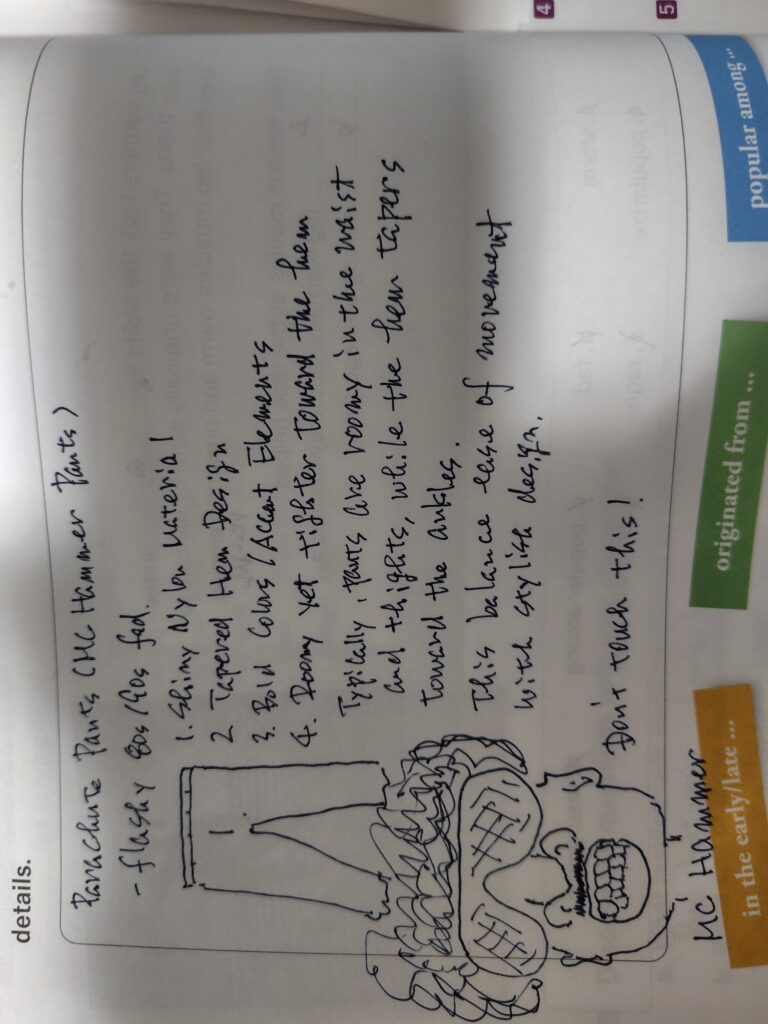 4
5
details.
Parachute Pants (MC Hammer Pants)
- flashy 80s/90s fad.
1. Shiny Nylon Material
2 Tapered Hem Design
3. Bold Colors/Accent Elements
4. Roomy yet tighter toward the hem
Typically, pants are roomy in the waist
and thights, while the hem tapers
toward the ankles.
This balance ease of movement
with stylish design.
Don't touch this!
MC Hammer
in the early/late ...
originated from ...
popular among ...